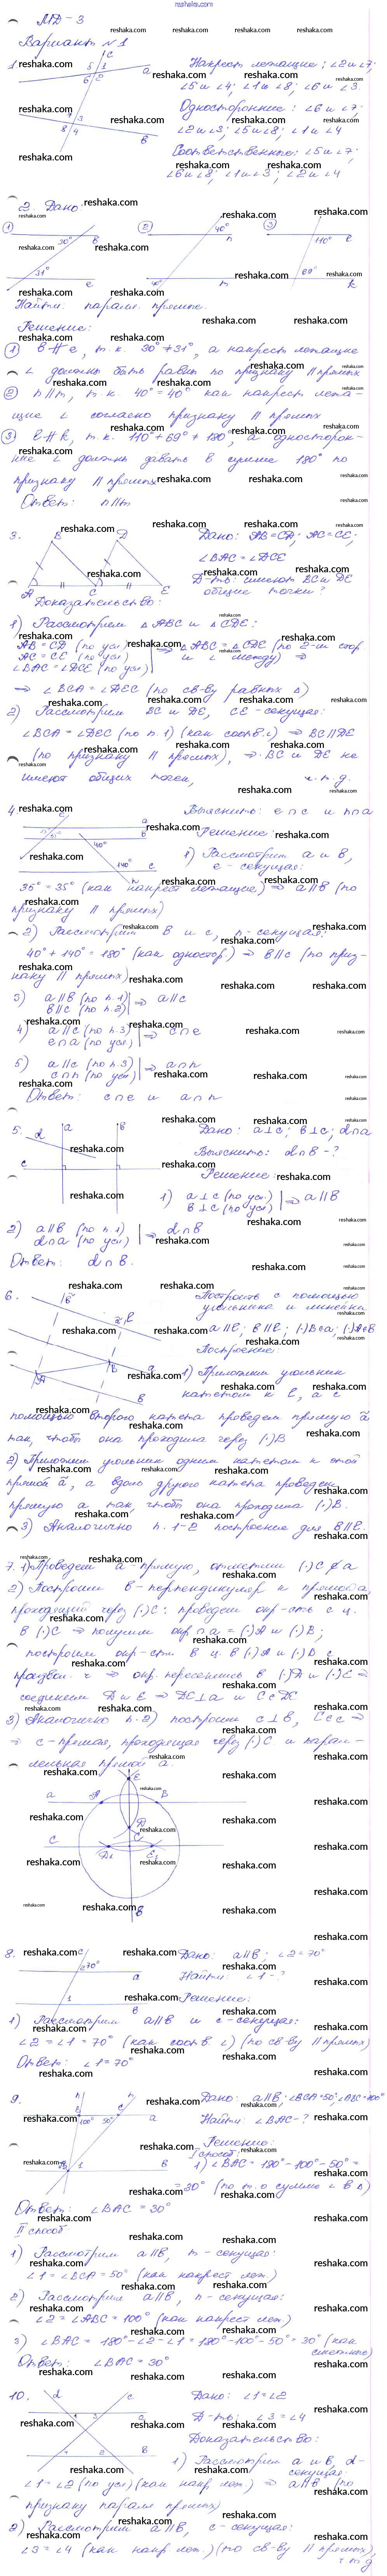 reshaka.com
МД-3
Вариант №1
1.
Накрест лежащие: ∠2 и ∠7;
∠5 и ∠4; ∠1 и ∠8; ∠6 и ∠3.
Односторонние: ∠6 и ∠7;
∠2 и ∠3; ∠5 и ∠8; ∠1 и ∠4
Соответственные: ∠5 и ∠7;
∠6 и ∠8; ∠1 и ∠3; ∠2 и ∠4
2. Дано:
Найти: паралл. прямые.
Решение:
① b ∦ e, т.к. 30° ≠ 31°, а накрест лежащие
∠ должны быть равны по признаку || прямых
② n||m, т.к. 40° = 40° как накрест лежа-
щие ∠ согласно признаку || прямых
③ ℓ ∦ k, т.к. 110° + 69° ≠ 180°, а односторон-
ние ∠ должны давать в сумме 180° по
признаку || прямых
Ответ: n||m
3.
Дано: AB=CD; AC=CE;
∠BAC = ∠DCE
Д-ть: имеют BC и DE
общие точки?
Доказательство:
1) Рассмотрим △ABC и △CDE:
AB = CD (по усл)
AC = CE (по усл)
∠BAC = ∠DCE (по усл)
⇒ △ABC = △CDE (по 2-м стор
и ∠ между) ⇒
⇒ ∠BCA = ∠DEC (по св-ву равных △)
2) Рассмотрим BC и DE, CE - секущая:
∠BCA = ∠DEC (по п.1) (как соотв.∠) ⇒ BC||DE
(по признаку || прямых), ⇒ BC и DE не
имеют общих точек, ч.т.д.
4.
Выяснить: e ∩ c и n ∩ a
Решение:
1) Рассмотрим a и b,
e - секущая:
35° = 35° (как накрест лежащие) ⇒ a||b (по
признаку || прямых)
2) Рассмотрим b и c, n - секущая:
40° + 140° = 180° (как одностор) ⇒ b||c (по приз-
наку || прямых)
3) a||b (по п.1)
b||c (по п.2)
⇒ a||c
4) a||c (по п.3)
e ∩ a (по усл)
⇒ c ∩ e
5) a||c (по п.3)
c ∩ n (по усл)
⇒ a ∩ n
Ответ: c ∩ e и a ∩ n
5.
Дано: a⊥c; b⊥c; d∩a
Выяснить: d∩b - ?
Решение:
1) a⊥c (по усл)
b⊥c (по усл)
⇒ a||b
2) a||b (по п.1)
d∩a (по усл)
⇒ d∩b
Ответ: d∩b.
6.
Построить с помощью
угольника и линейки
Построение:
1) Приложим угольник
катетом к ℓ, а с
помощью второго катета проведем прямую ã
так, чтобы она проходила через (·)B
2) Приложим угольник одним катетом к этой
прямой ã, а вдоль другого катета проведем
прямую a так, чтобы она проходила (·)B.
3) Аналогично п. 1-2 построение для b||ℓ.
7. 1) Проведем a - прямую, отметим (·)C ∉ a
2) Построим b - перпендикуляр к прямой a,
проходящий через (·)C: проведем окр-сть с ц.
в (·)C ⇒ получим окр ∩ a = (·)A и (·)B;
построим окр-сти в ц. в (·)A и (·)B с
произвол. r ⇒ окр. пересеклись в (·)D и (·)E ⇒
соединим D и E ⇒ DE⊥a и C∈DE
3) Аналогично п.2) построим c⊥b, C∈c ⇒
⇒ c - прямая, проходящая через (·)C и парал-
лельная прямой a.
8.
Дано: a||b; ∠2=70°
Найти: ∠1 - ?
Решение:
1) Рассмотрим a||b и c - секущая:
∠2 = ∠1 = 70° (как соотв. ∠) (по св-ву || прямых)
Ответ: ∠1 = 70°
9.
Дано: a||b; ∠BCA=50°; ∠ABC=100°
Найти: ∠BAC - ?
Решение:
I способ
1) ∠BAC = 180° - 100° - 50° =
= 30° (по т. о сумме ∠ в △)
Ответ: ∠BAC = 30°
II способ
1) Рассмотрим a||b, m - секущая:
∠1 = ∠BCA = 50° (как накрест леж.)
2) Рассмотрим a||b, n - секущая:
∠2 = ∠ABC = 100° (как накрест леж)
3) ∠BAC = 180° - ∠2 - ∠1 = 180° - 100° - 50° = 30° (как
смежные)
Ответ: ∠BAC = 30°
10.
Дано: ∠1=∠2
Д-ть: ∠3=∠4
Доказательство:
1) Рассмотрим a и b, d -
секущая:
∠1 = ∠2 (по усл) (как накр. леж.) ⇒ a||b (по
признаку паралл прямых)
2) Рассмотрим a||b, c - секущая:
∠3 = ∠4 (как накр леж.) (по св-ву || прямых),
ч.т.д